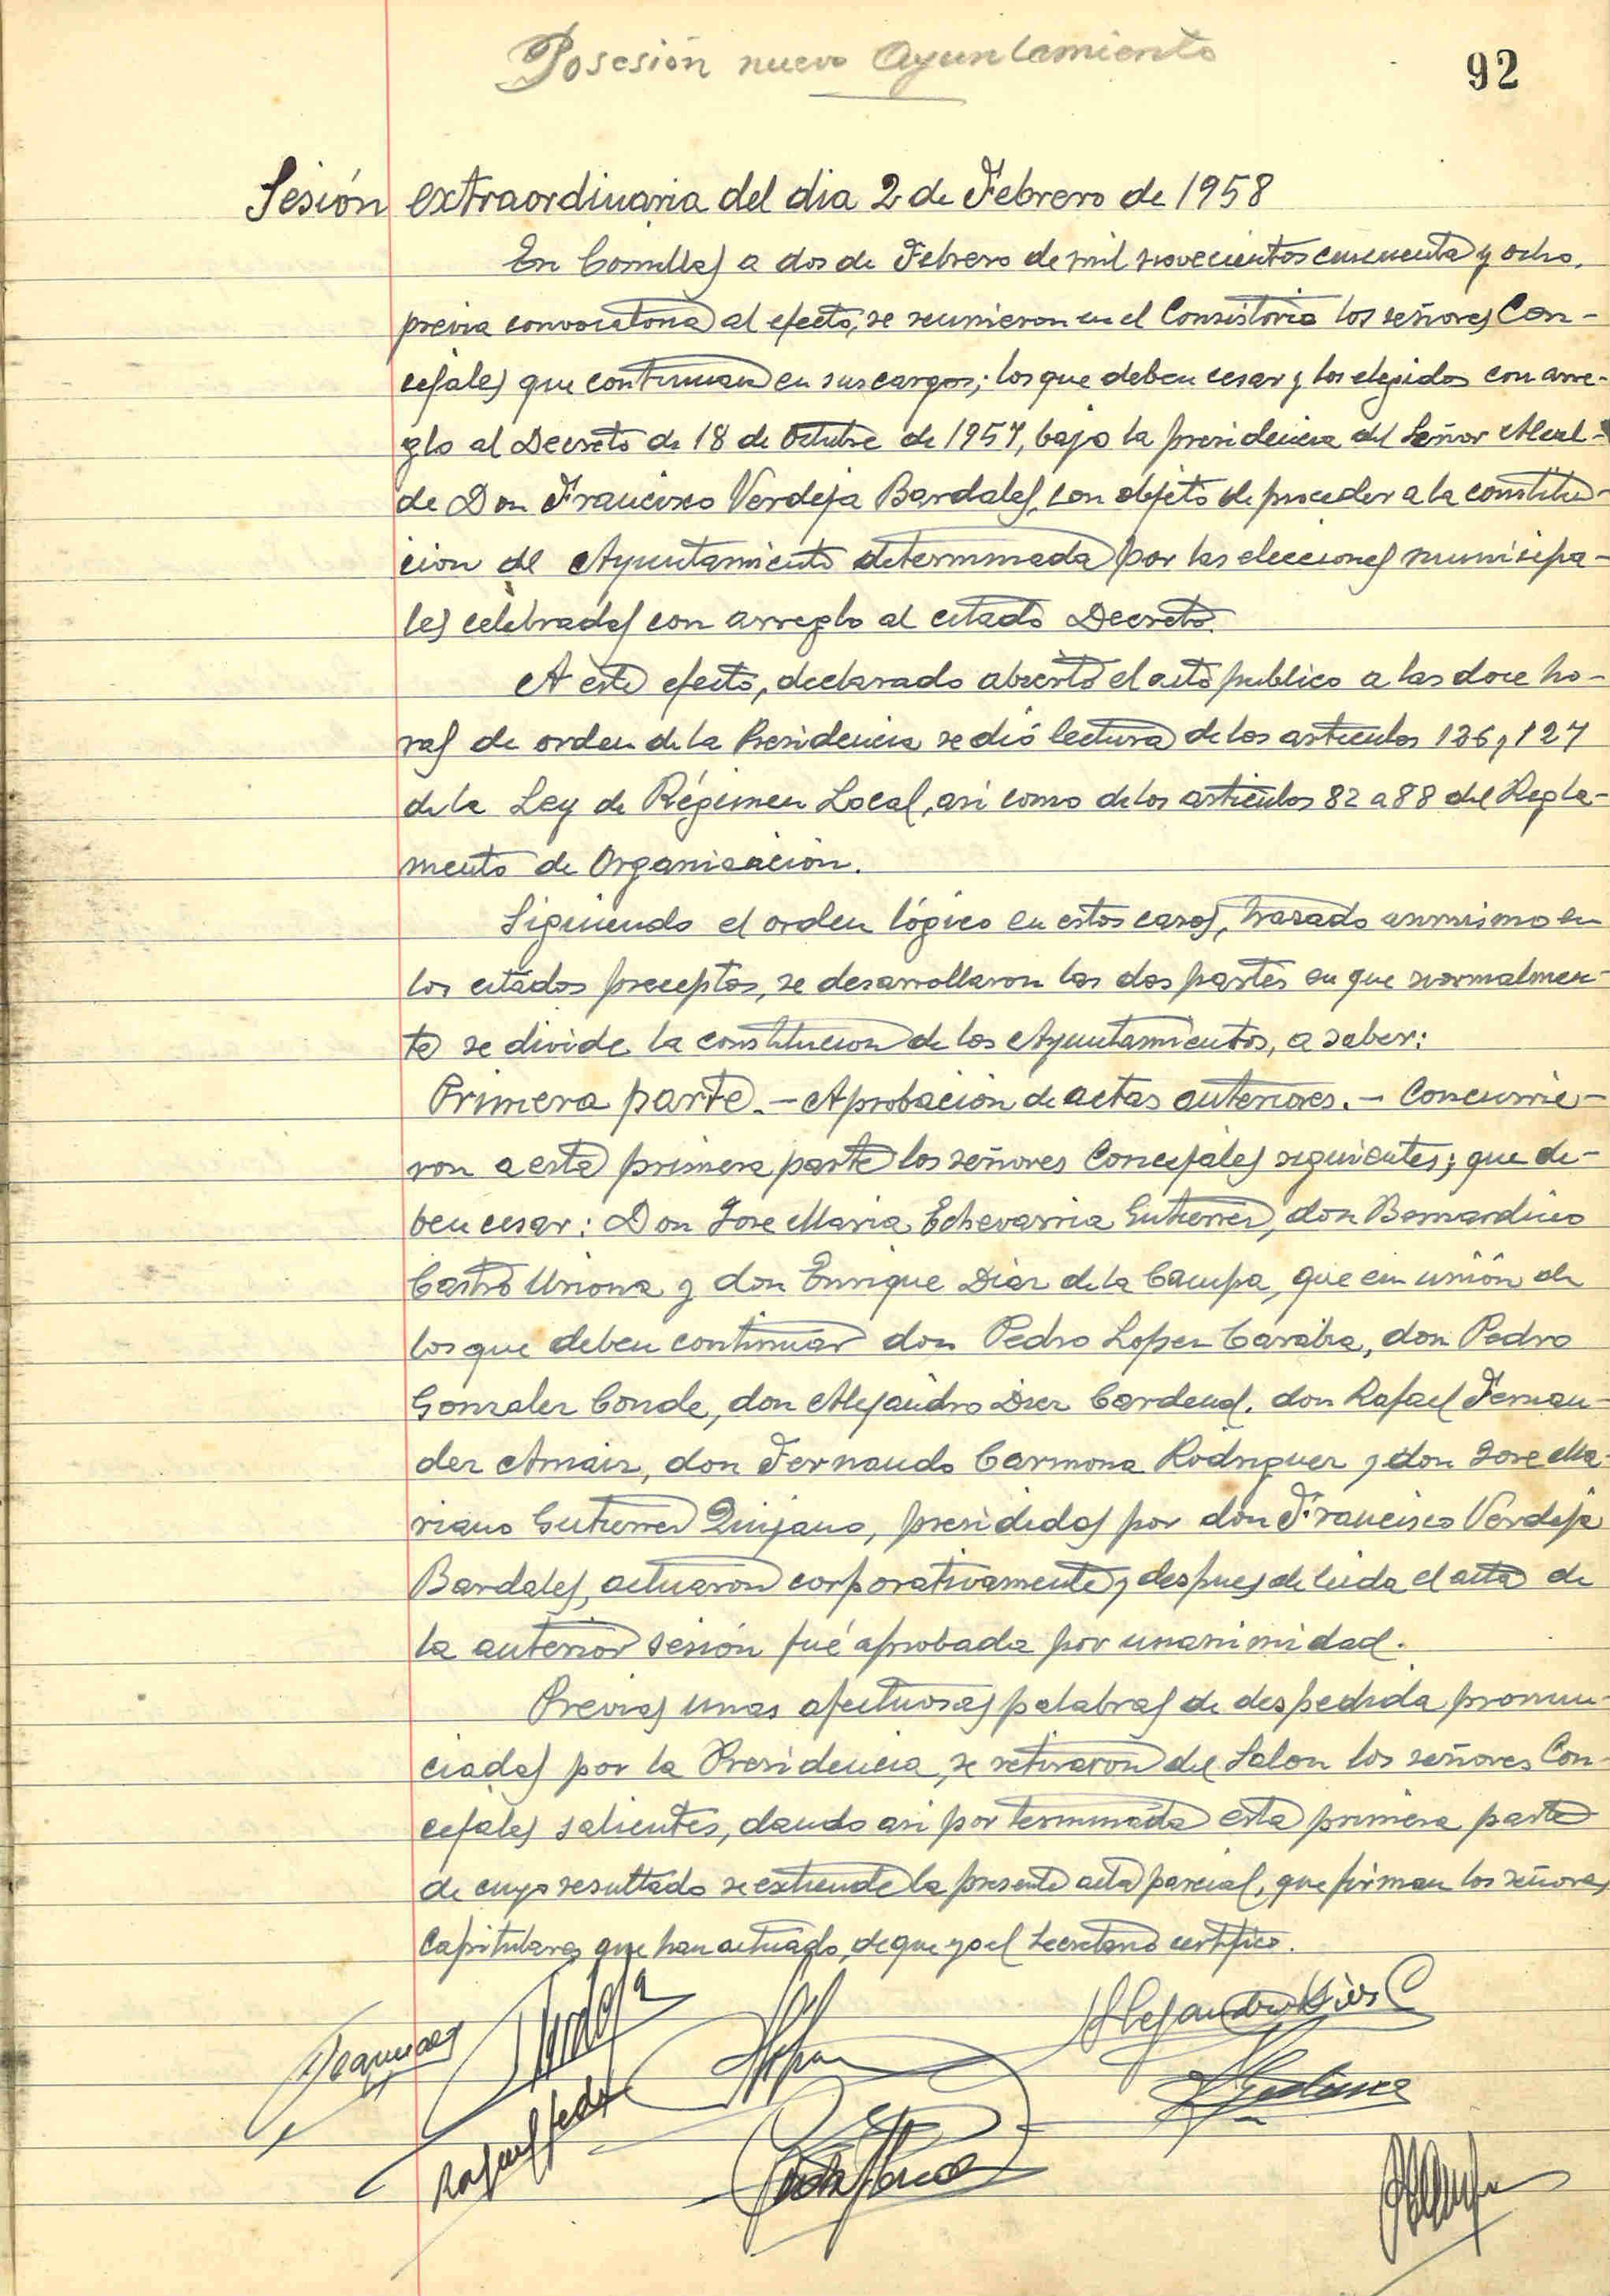 Posesión nuevo Ayuntamiento
92
Sesión extraordinaria del dia 2 de Febrero de 1958
En Comillas a dos de Febrero de mil novecientos cincuenta y ocho,
previa convocatoria al efecto, se reunieron en el Consistorio los señores Con-
cejales que continuan en sus cargos; los que deben cesar y los elegidos con arre-
glo al Decreto de 18 de Octubre de 1957, bajo la presidencia del Señor Alcal-
de Don Francisco Verdeja Bardales, con objeto de proceder a la constitu-
cion del Ayuntamiento determinada por las elecciones municipa-
les celebradas con arreglo al citado Decreto.
A este efecto, declarado abierto el acto publico a las doce ho-
ras de orden de la Presidencia se dió lectura de los articulos 126 y 127
de la Ley de Régimen Local, asi como de los articulos 82 a 88 del Regla-
mento de Organización.
Siguiendo el orden lógico en estos casos, trazado asimismo en
los citados preceptos, se desarrollaron las dos partes en que normalmen-
te se divide la constitucion de los Ayuntamientos, a saber:
Primera parte.- Aprobación de actas anteriores.- Concurrie-
ron a esta primera parte los señores Concejales siguientes; que de-
ben cesar: Don Jose Maria Echevarria Gutierrez, don Bernardino
Castro Uriona y don Enrique Diaz de la Campa, que en unión de
los que deben continuar don Pedro Lopez Caraba, don Pedro
Gonzalez Conde, don Alejandro Diez Cardenal, don Rafael Fernan-
dez Amaiz, don Fernando Carmona Rodriguez y don Jose Ma-
riano Gutierrez Quijano, presididos por don Francisco Verdeja
Bardales, actuaron corporativamente y despues de leida el acta de
la anterior sesión fué aprobada por unanimidad.
Previas unas afectuosas palabras de despedida pronun-
ciadas por la Presidencia, se retiraron del Salon los señores Con-
cejales salientes, dando asi por terminada esta primera parte
de cuyo resultado se extiende la presente acta parcial, que firman los señores
Capitulares que han actuado, de que yo el Secretario certifico.
Verdeja
Alejandro Diez C